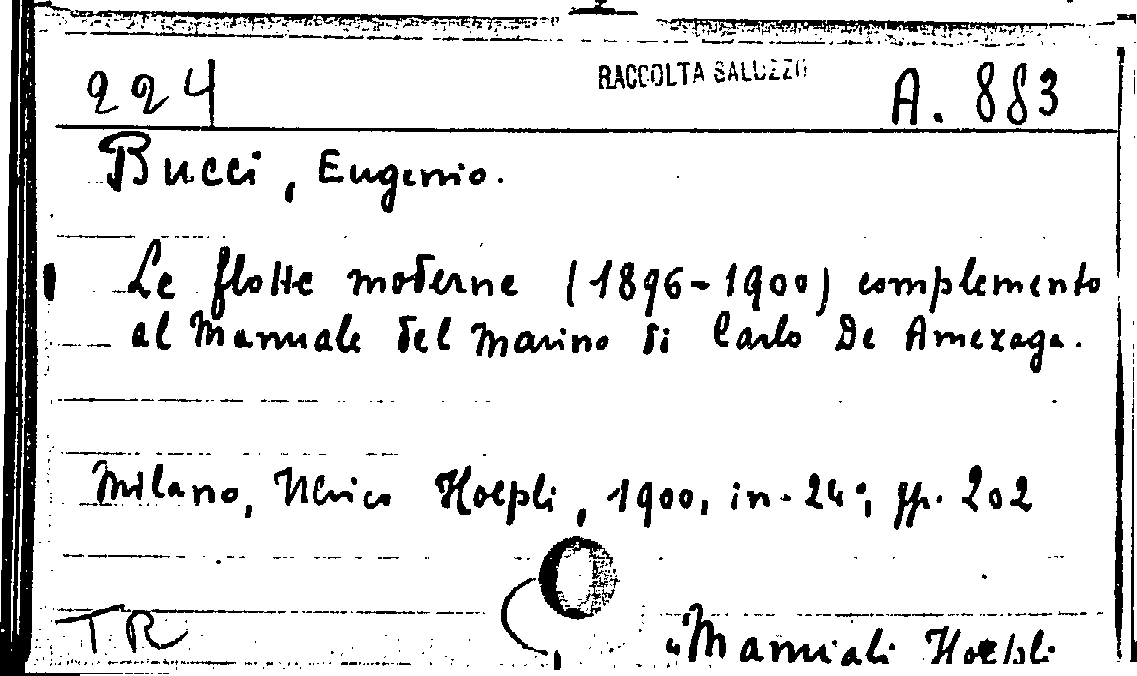 224 RACCOLTA SALUZZO A. 883
Bucci, Eugenio.
Le flotte moderne (1896-1900) complemento
al Manuale del Marino di Carlo De Amezaga.
Milano, Ulrico Hoepli, 1900, in-24°, pp. 202
TR "Manuali Hoepli